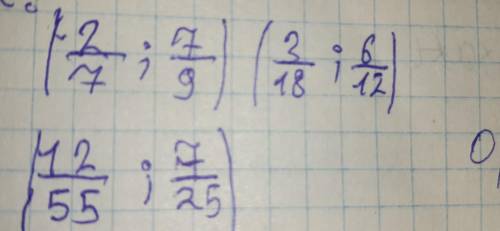 (2/7 ; 7/9) (3/18 ; 6/12)
(12/55 ; 7/25)
0,